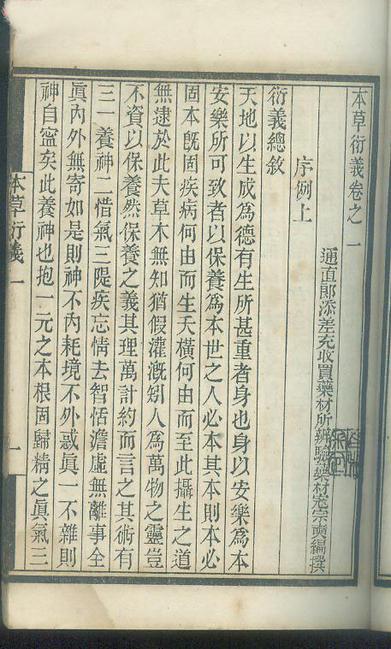 本草衍義卷之一
通直郎添差充收買藥材所辨驗藥材寇宗奭編撰
序例上
衍義總敘
天地以生成爲德有生所甚重者身也身以安樂爲本
安樂所可致者以保養爲本世之人必本其本則本必
固本旣固疾病何由而生夭橫何由而至此攝生之道
無逮於此夫草木無知猶假灌漑矧人爲萬物之靈豈
不資以保養然保養之義其理萬計約而言之其術有
三一養神二惜氣三隄疾忘情去智恬澹虛無離事全
眞內外無寄如是則神不內耗境不外惑眞一不雜則
神自寧矣此養神也抱一元之本根固歸精之眞氣三
本草衍義一
一